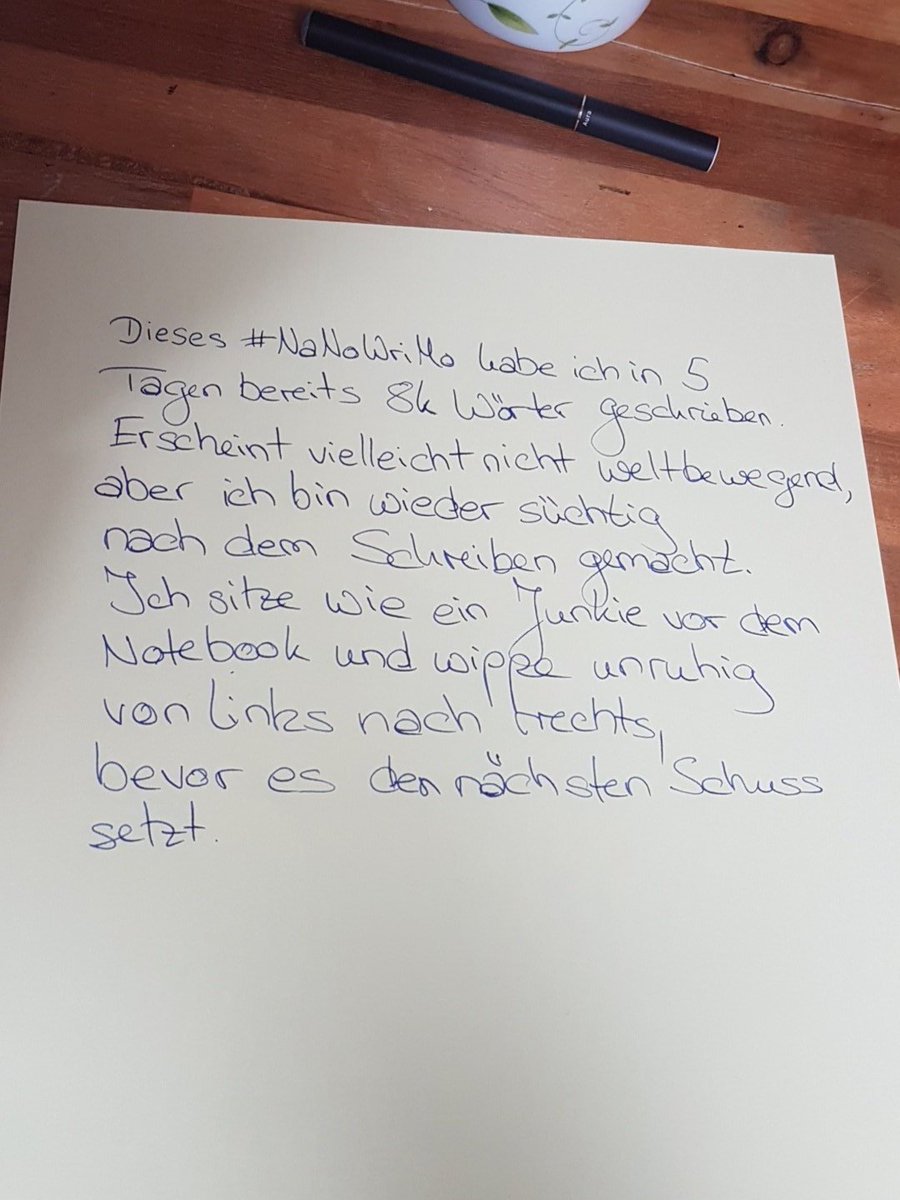 Aura
Dieses #NaNoWriMo habe ich in 5
Tagen bereits 8k Wörter geschrieben.
Erscheint vielleicht nicht weltbewegend,
aber ich bin wieder süchtig
nach dem Schreiben gemacht.
Ich sitze wie ein Junkie vor dem
Notebook und wippe unruhig
von links nach rechts,
bevor es den nächsten Schuss
setzt.